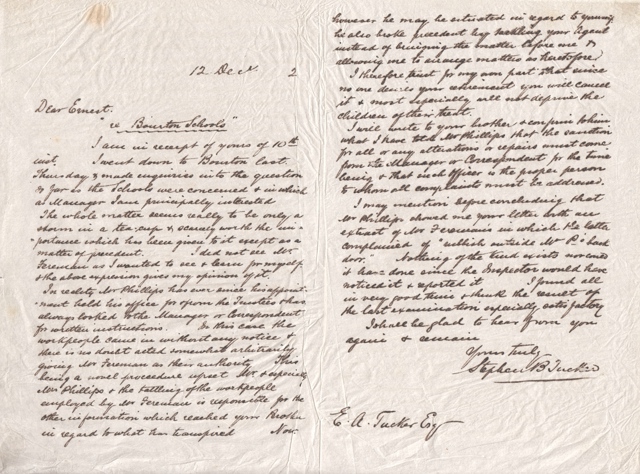 12 Dec 2
Dear Ernest.
"re Bourton Schools"
I am in receipt of yours of 10th
inst. I went down to Bourton last
Thursday & made enquiries into the question
so far as the Schools were concerned & in which
as Manager I am principally interested
The whole matter seems really to be only a
storm in a tea-cup & scarcely worth the im-
portance which has been given to it except as a
matter of precedent. I did not see Mr
Fereman as I wanted to see & learn for myself
& the above expression gives my opinion of it.
In reality Mr Phillips has ever since his appoint-
ment held his office for & from the Trustees & has
always looked to the Manager or Correspondent
for written instructions. In this case the
workpeople came in without any notice &
there is no doubt acted somewhat arbitrarily
giving Mr Fereman as their authority This
being a novel procedure upset Mr & especially
Mrs Phillips & the tattling of the workpeople
employed by Mr Fereman is responsible for the
other information which reached your Brother
in regard to what has transpired Now
however he may be situated in regard to
he also broke precedent by tackling your Agent
instead of bringing the matter before me &
allowing me to arrange matters as heretofore
I therefore trust for my own part that since
no one desires your retirement you will cancel
it & most especially will not deprive the
children of their treat.
I will write to your brother & confirm to him
what I have told Mr Phillips that the sanction
for all or any alterations or repairs must come
from the Manager or Correspondent for the time
being & that such officer is the proper person
to whom all complaints must be addressed.
I may mention before concluding that
Mr Phillips showed me your letter with an
extract of Mr Feremans in which the latter
complained of "rubbish outside Mr P's back
door." Nothing of the kind exists nor could
it have done since the Inspector would have
noticed it & reported it I found all
in very good times & think the result of
the last examination especially satisfactory
I shall be glad to hear from you
again & remain
Yours truly
Stephen B Tucker
E. A. Tucker Esq